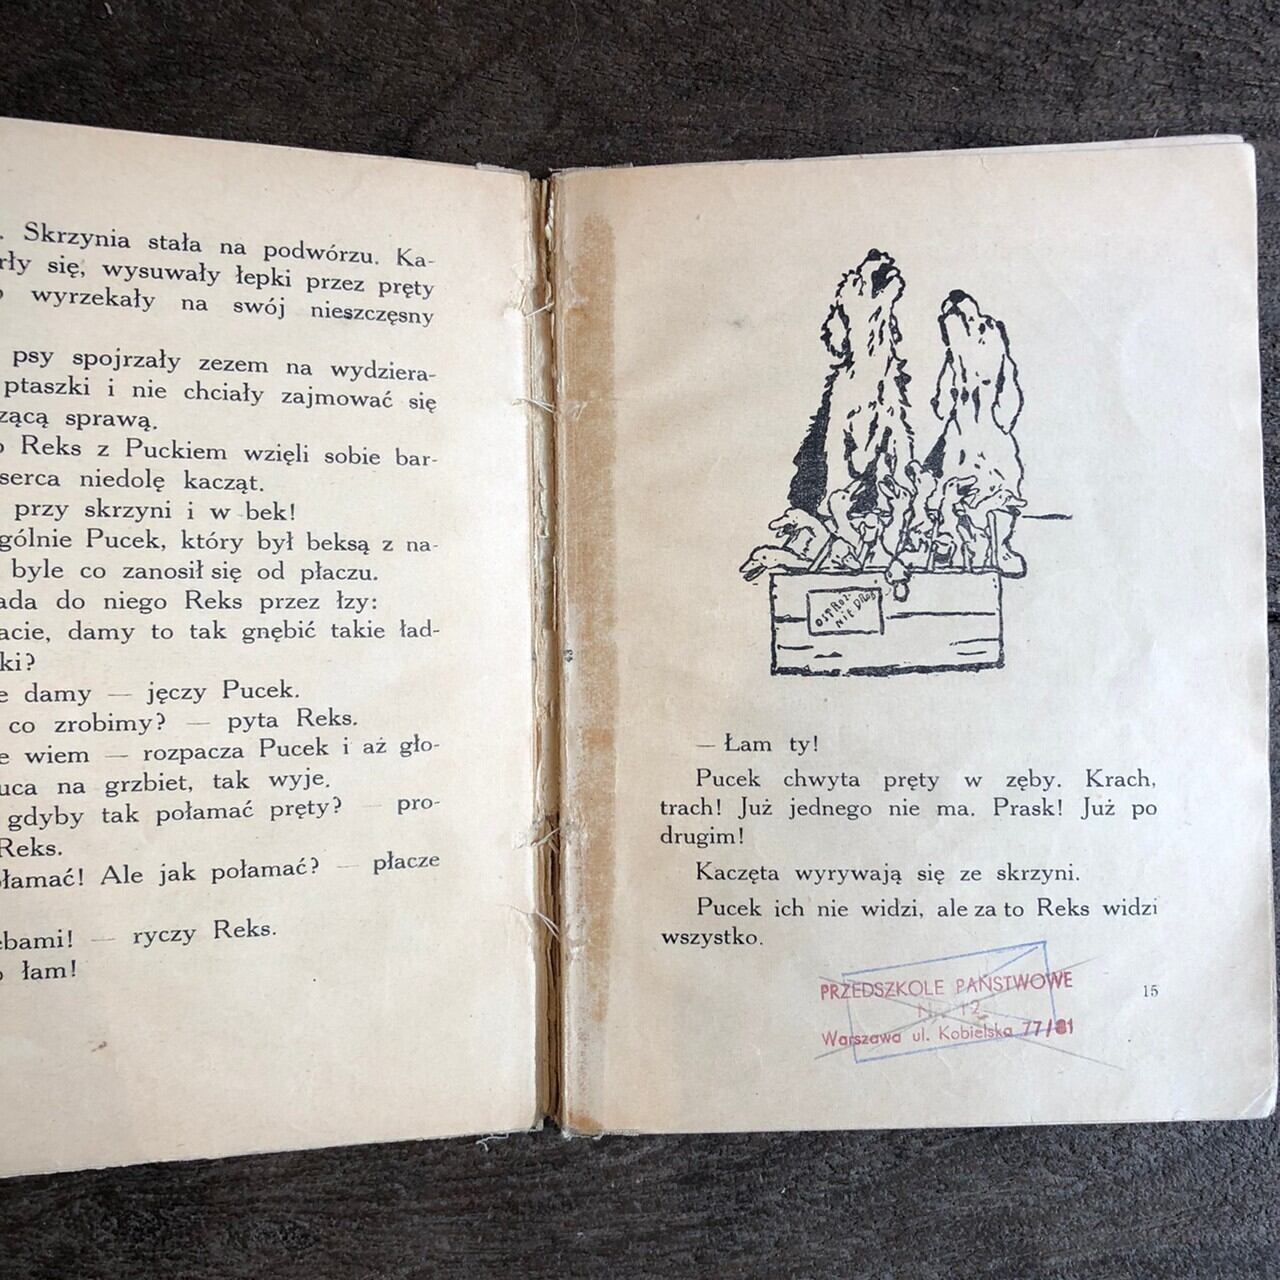 . Skrzynia stała na podwórzu. Ka-
rły się, wysuwały łepki przez pręty
wyrzekały na swój nieszczęsny
psy spojrzały zezem na wydziera-
ptaszki i nie chciały zajmować się
zącą sprawą.
Reks z Puckiem wzięli sobie bar-
serca niedolę kacząt.
przy skrzyni i w bek!
gólnie Pucek, który był beksą z na-
byle co zanosił się od płaczu.
ada do niego Reks przez łzy:
acie, damy to tak gnębić takie ład-
ki?
e damy — jęczy Pucek.
co zrobimy? — pyta Reks.
e wiem — rozpacza Pucek i aż gło-
uca na grzbiet, tak wyje.
gdyby tak połamać pręty? — pro-
Reks.
ołamać! Ale jak połamać? — płacze
ębami! — ryczy Reks.
łam!
OSTROŻ-
NIE DROB
— Łam ty!
Pucek chwyta pręty w zęby. Krach,
trach! Już jednego nie ma. Prask! Już po
drugim!
Kaczęta wyrywają się ze skrzyni.
Pucek ich nie widzi, ale za to Reks widzi
wszystko.
PRZEDSZKOLE PAŃSTWOWE
Nr 12
Warszawa ul. Kobielska 77/81
15